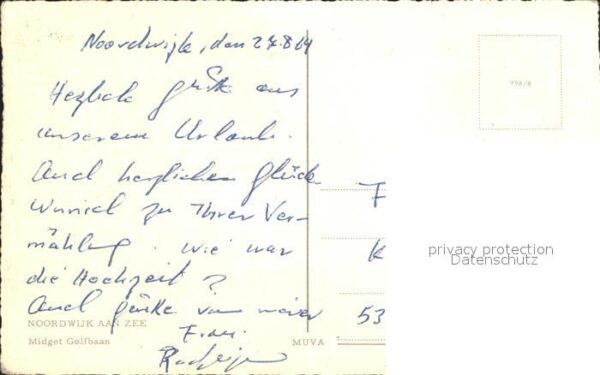 Noordwijk, den 27.8.64
Herzliche Grüße aus
unserem Urlaub.
Auch herzlichen Glück-
wunsch zu Ihrer Ver-
mählung. Wie war
die Hochzeit?
Auch Grüße von meiner
Frau.
NOORDWIJK AAN ZEE
Midget Golfbaan
MUVA
998/8
F
K
53
privacy protection
Datenschutz